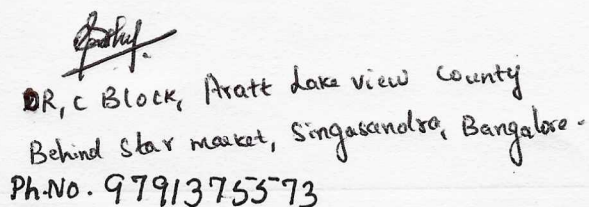 DR, C Block, Aratt Lake view county
Behind Star market, Singasandra, Bangalore.
Ph.No. 9791375573